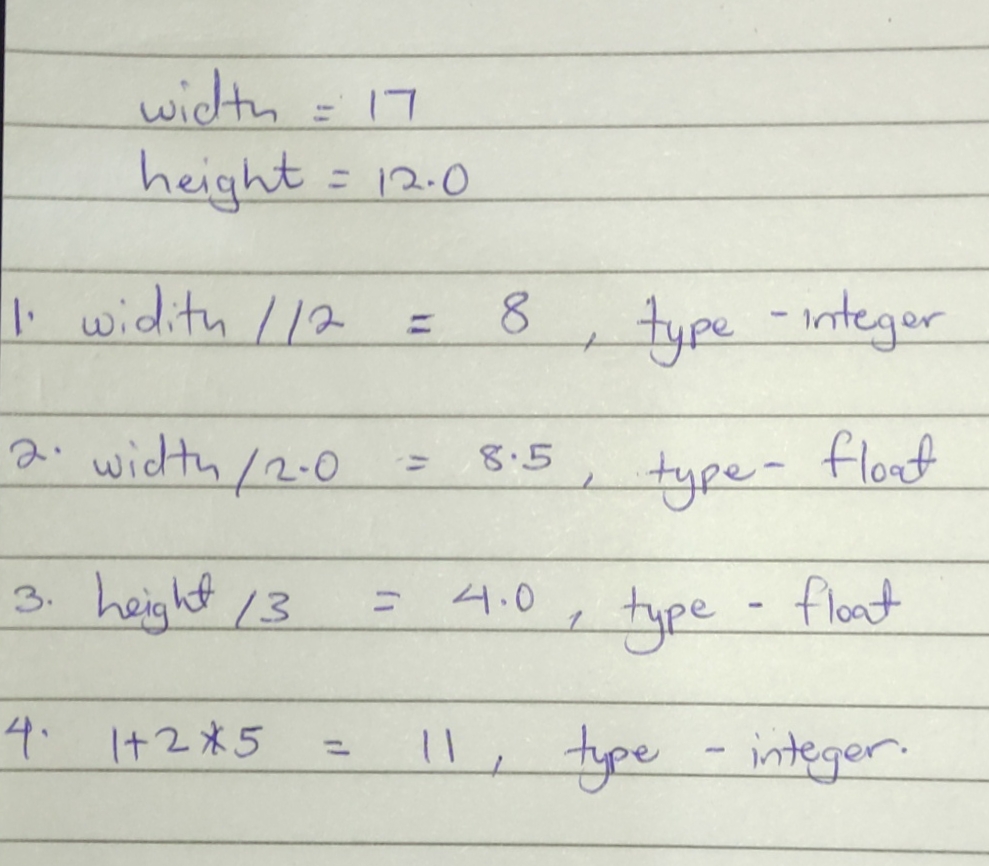 width = 17
height = 12.0
1. widith //2 = 8 , type - integer
2. width /2.0 = 8.5 , type - float
3. height /3 = 4.0 , type - float
4. 1+2*5 = 11 , type - integer.